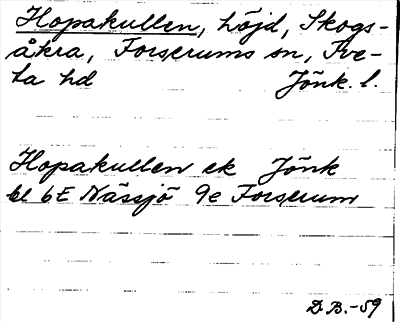 Hopakullen, höjd, Skogs-
åkra, Forserums sn, Tve-
ta hd Jönk. l.
Hopakullen ek Jönk
bl 6E Nässjö 9e Forserum
D.B.-59